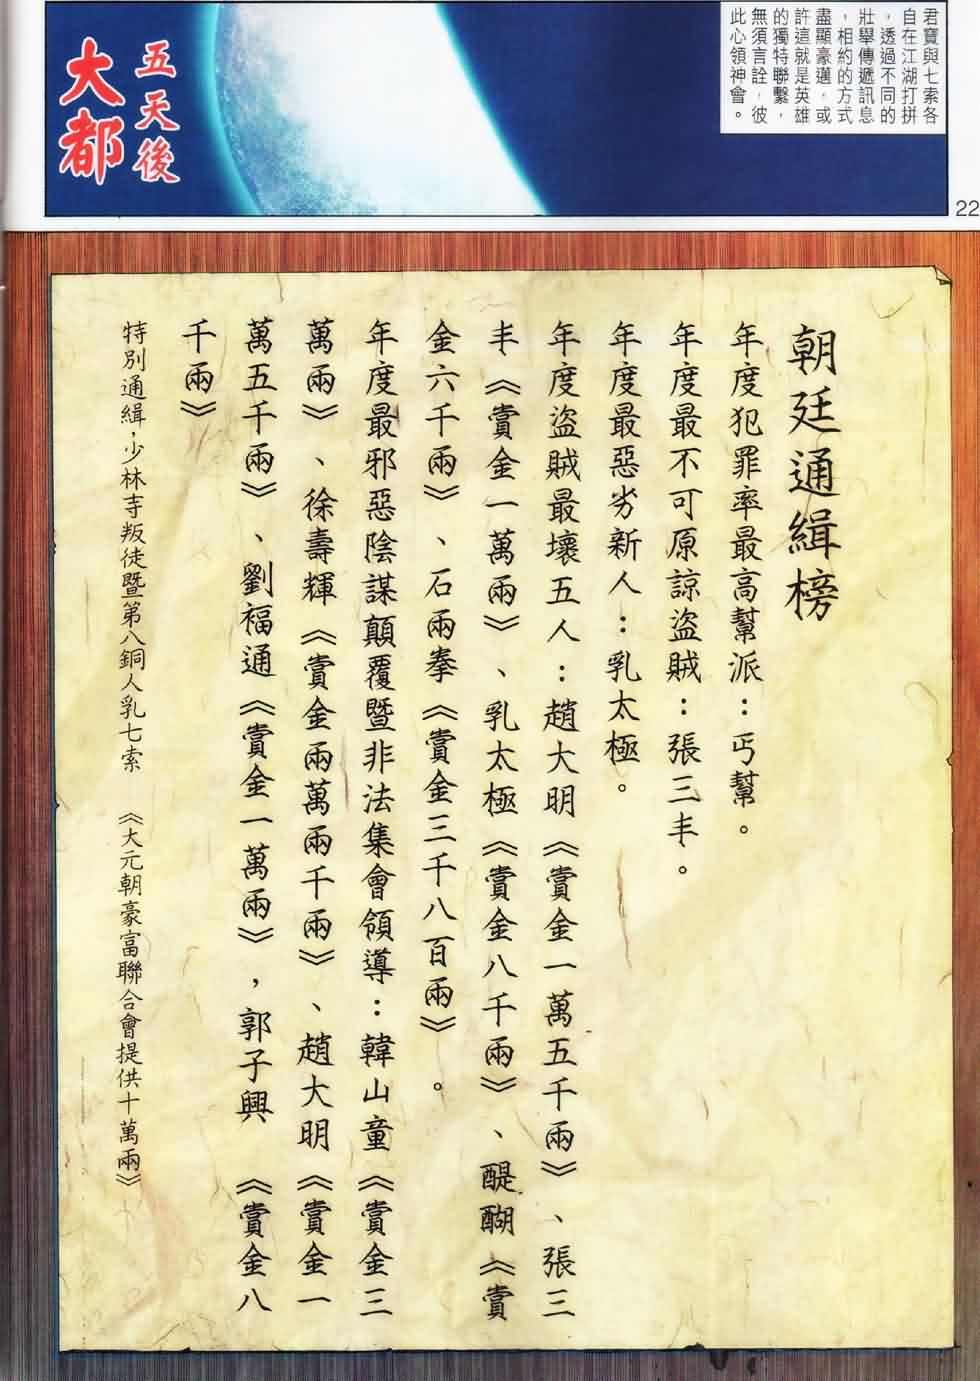 君寶與七索各
自在江湖打拼
，透過不同的
壯舉傳遞訊息
，相約的方式
盡顯豪邁，或
許這就是英雄
的獨特聯繫，
無須言詮，彼
此心領神會。
五天後
大都
22
朝廷通緝榜
年度犯罪率最高幫派：丐幫。
年度最不可原諒盜賊：張三丰。
年度最惡劣新人：乳太極。
年度盜賊最壞五人：趙大明《賞金一萬五千兩》、張三
丰《賞金一萬兩》、乳太極《賞金八千兩》、醍醐《賞
金六千兩》、石兩拳《賞金三千八百兩》。
年度最邪惡陰謀顛覆暨非法集會領導：韓山童《賞金三
萬兩》、徐壽輝《賞金兩萬兩千兩》、趙大明《賞金一
萬五千兩》、劉福通《賞金一萬兩》，郭子興《賞金八
千兩》
特別通緝，少林寺叛徒暨第八銅人乳七索　《大元朝豪富聯合會提供十萬兩》